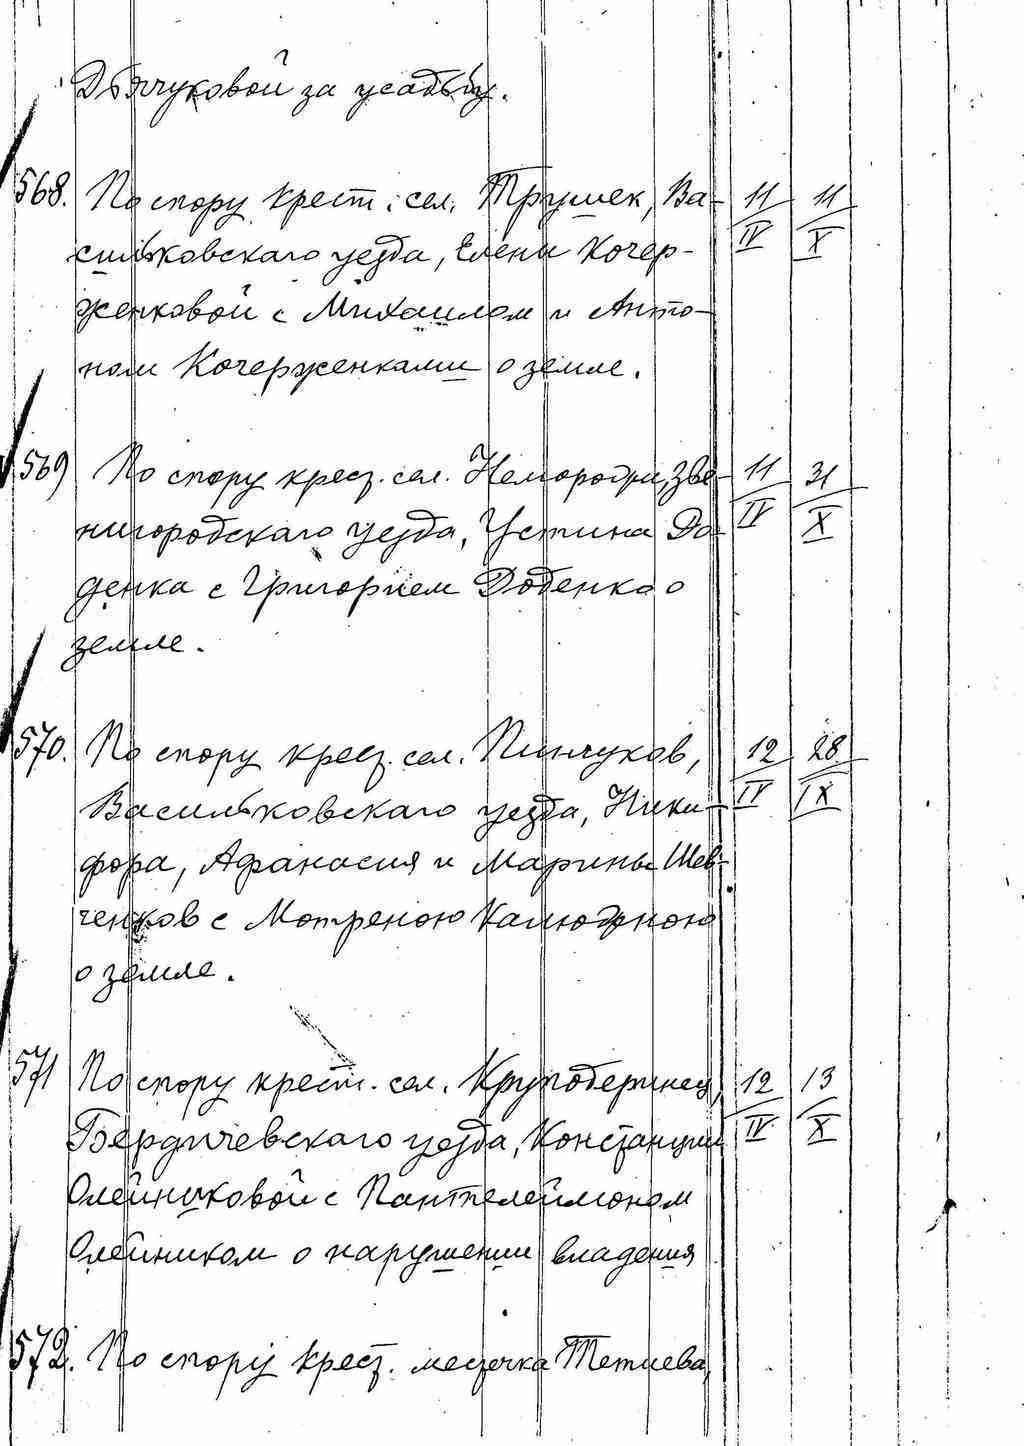 Дьячуковой за усадьбу.
568. По спору крест. сел. Трушек, Ва- 11/IV 11/X
сильковскаго уезда, Елены Кочер-
женковой с Михаилом и Анто-
ном Кочерженками о земле.
569 По спору крест. сел. Неморожи, Зве- 11/IV 31/X
нигородскаго уезда, Устина До-
денка с Григорием Доденко о
земле.
570. По спору крест. сел. Пинчуков, 12/IV 28/IX
Васильковскаго уезда, Ники-
фора, Афанасия и Марины Шев-
ченков с Мотреною
о земле.
571 По спору крест. сел. 12/IV 13/X
Бердичевскаго уезда, Констанции
Олейниковой с Пантелеймоном
Олейником о нарушении владения
572. По спору крест. местечка Тетиева,